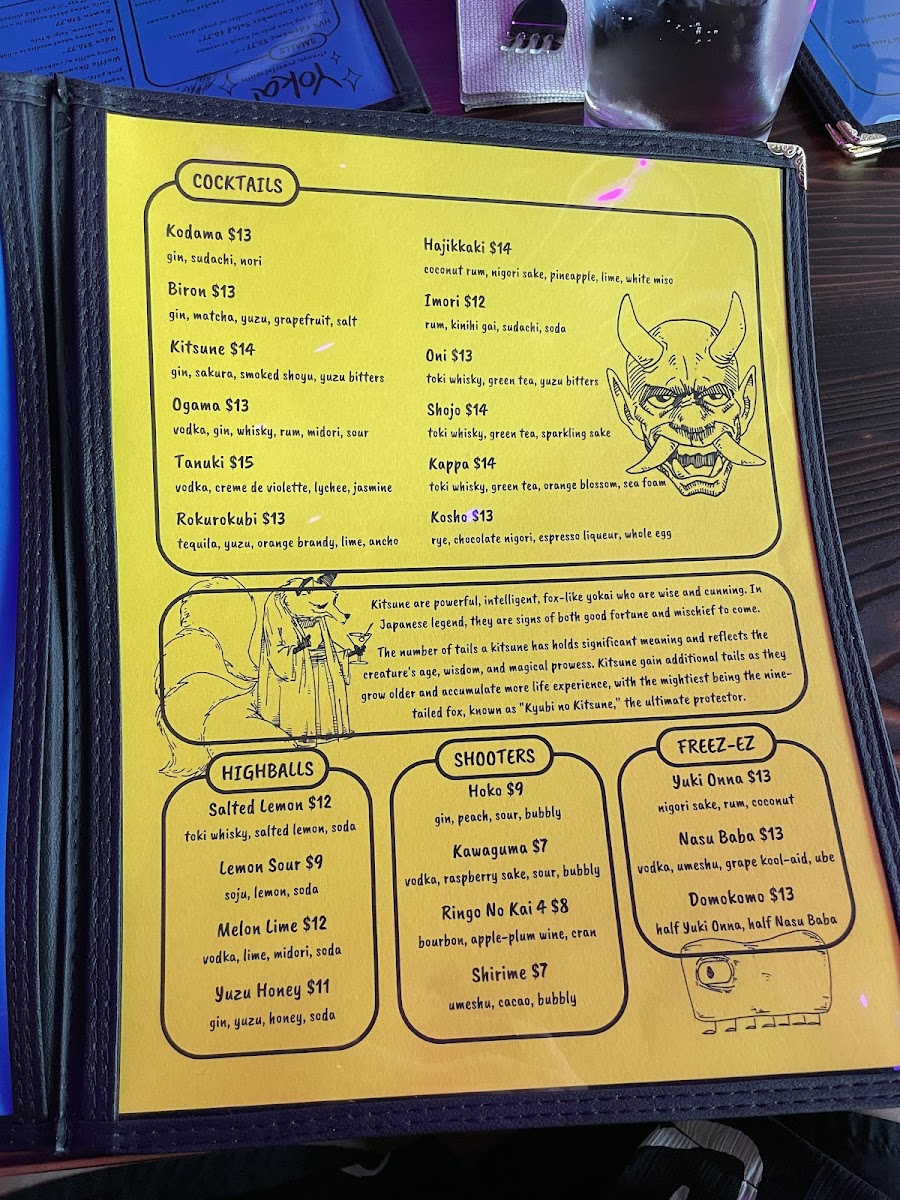 Yokai
SMALLS
COCKTAILS
Kodama $13
gin, sudachi, nori
Biron $13
gin, matcha, yuzu, grapefruit, salt
Kitsune $14
gin, sakura, smoked shoyu, yuzu bitters
Ogama $13
vodka, gin, whisky, rum, midori, sour
Tanuki $15
vodka, creme de violette, lychee, jasmine
Rokurokubi $13
tequila, yuzu, orange brandy, lime, ancho
Hajikkaki $14
coconut rum, nigori sake, pineapple, lime, white miso
Imori $12
rum, kinihi gai, sudachi, soda
Oni $13
toki whisky, green tea, yuzu bitters
Shojo $14
toki whisky, green tea, sparkling sake
Kappa $14
toki whisky, green tea, orange blossom, sea foam
Kosho $13
rye, chocolate nigori, espresso liqueur, whole egg
Kitsune are powerful, intelligent, fox-like yokai who are wise and cunning. In
Japanese legend, they are signs of both good fortune and mischief to come.
The number of tails a kitsune has holds significant meaning and reflects the
creature's age, wisdom, and magical prowess. Kitsune gain additional tails as they
grow older and accumulate more life experience, with the mightiest being the nine-
tailed fox, known as "Kyubi no Kitsune," the ultimate protector.
HIGHBALLS
Salted Lemon $12
toki whisky, salted lemon, soda
Lemon Sour $9
soju, lemon, soda
Melon Lime $12
vodka, lime, midori, soda
Yuzu Honey $11
gin, yuzu, honey, soda
SHOOTERS
Hoko $9
gin, peach, sour, bubbly
Kawaguma $7
vodka, raspberry sake, sour, bubbly
Ringo No Kai 4 $8
bourbon, apple-plum wine, cran
Shirime $7
umeshu, cacao, bubbly
FREEZ-EZ
Yuki Onna $13
nigori sake, rum, coconut
Nasu Baba $13
vodka, umeshu, grape kool-aid, ube
Domokomo $13
half Yuki Onna, half Nasu Baba